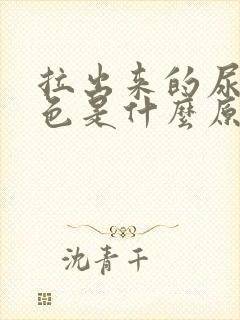 拉出来的尿
色是什麼原
沈青千